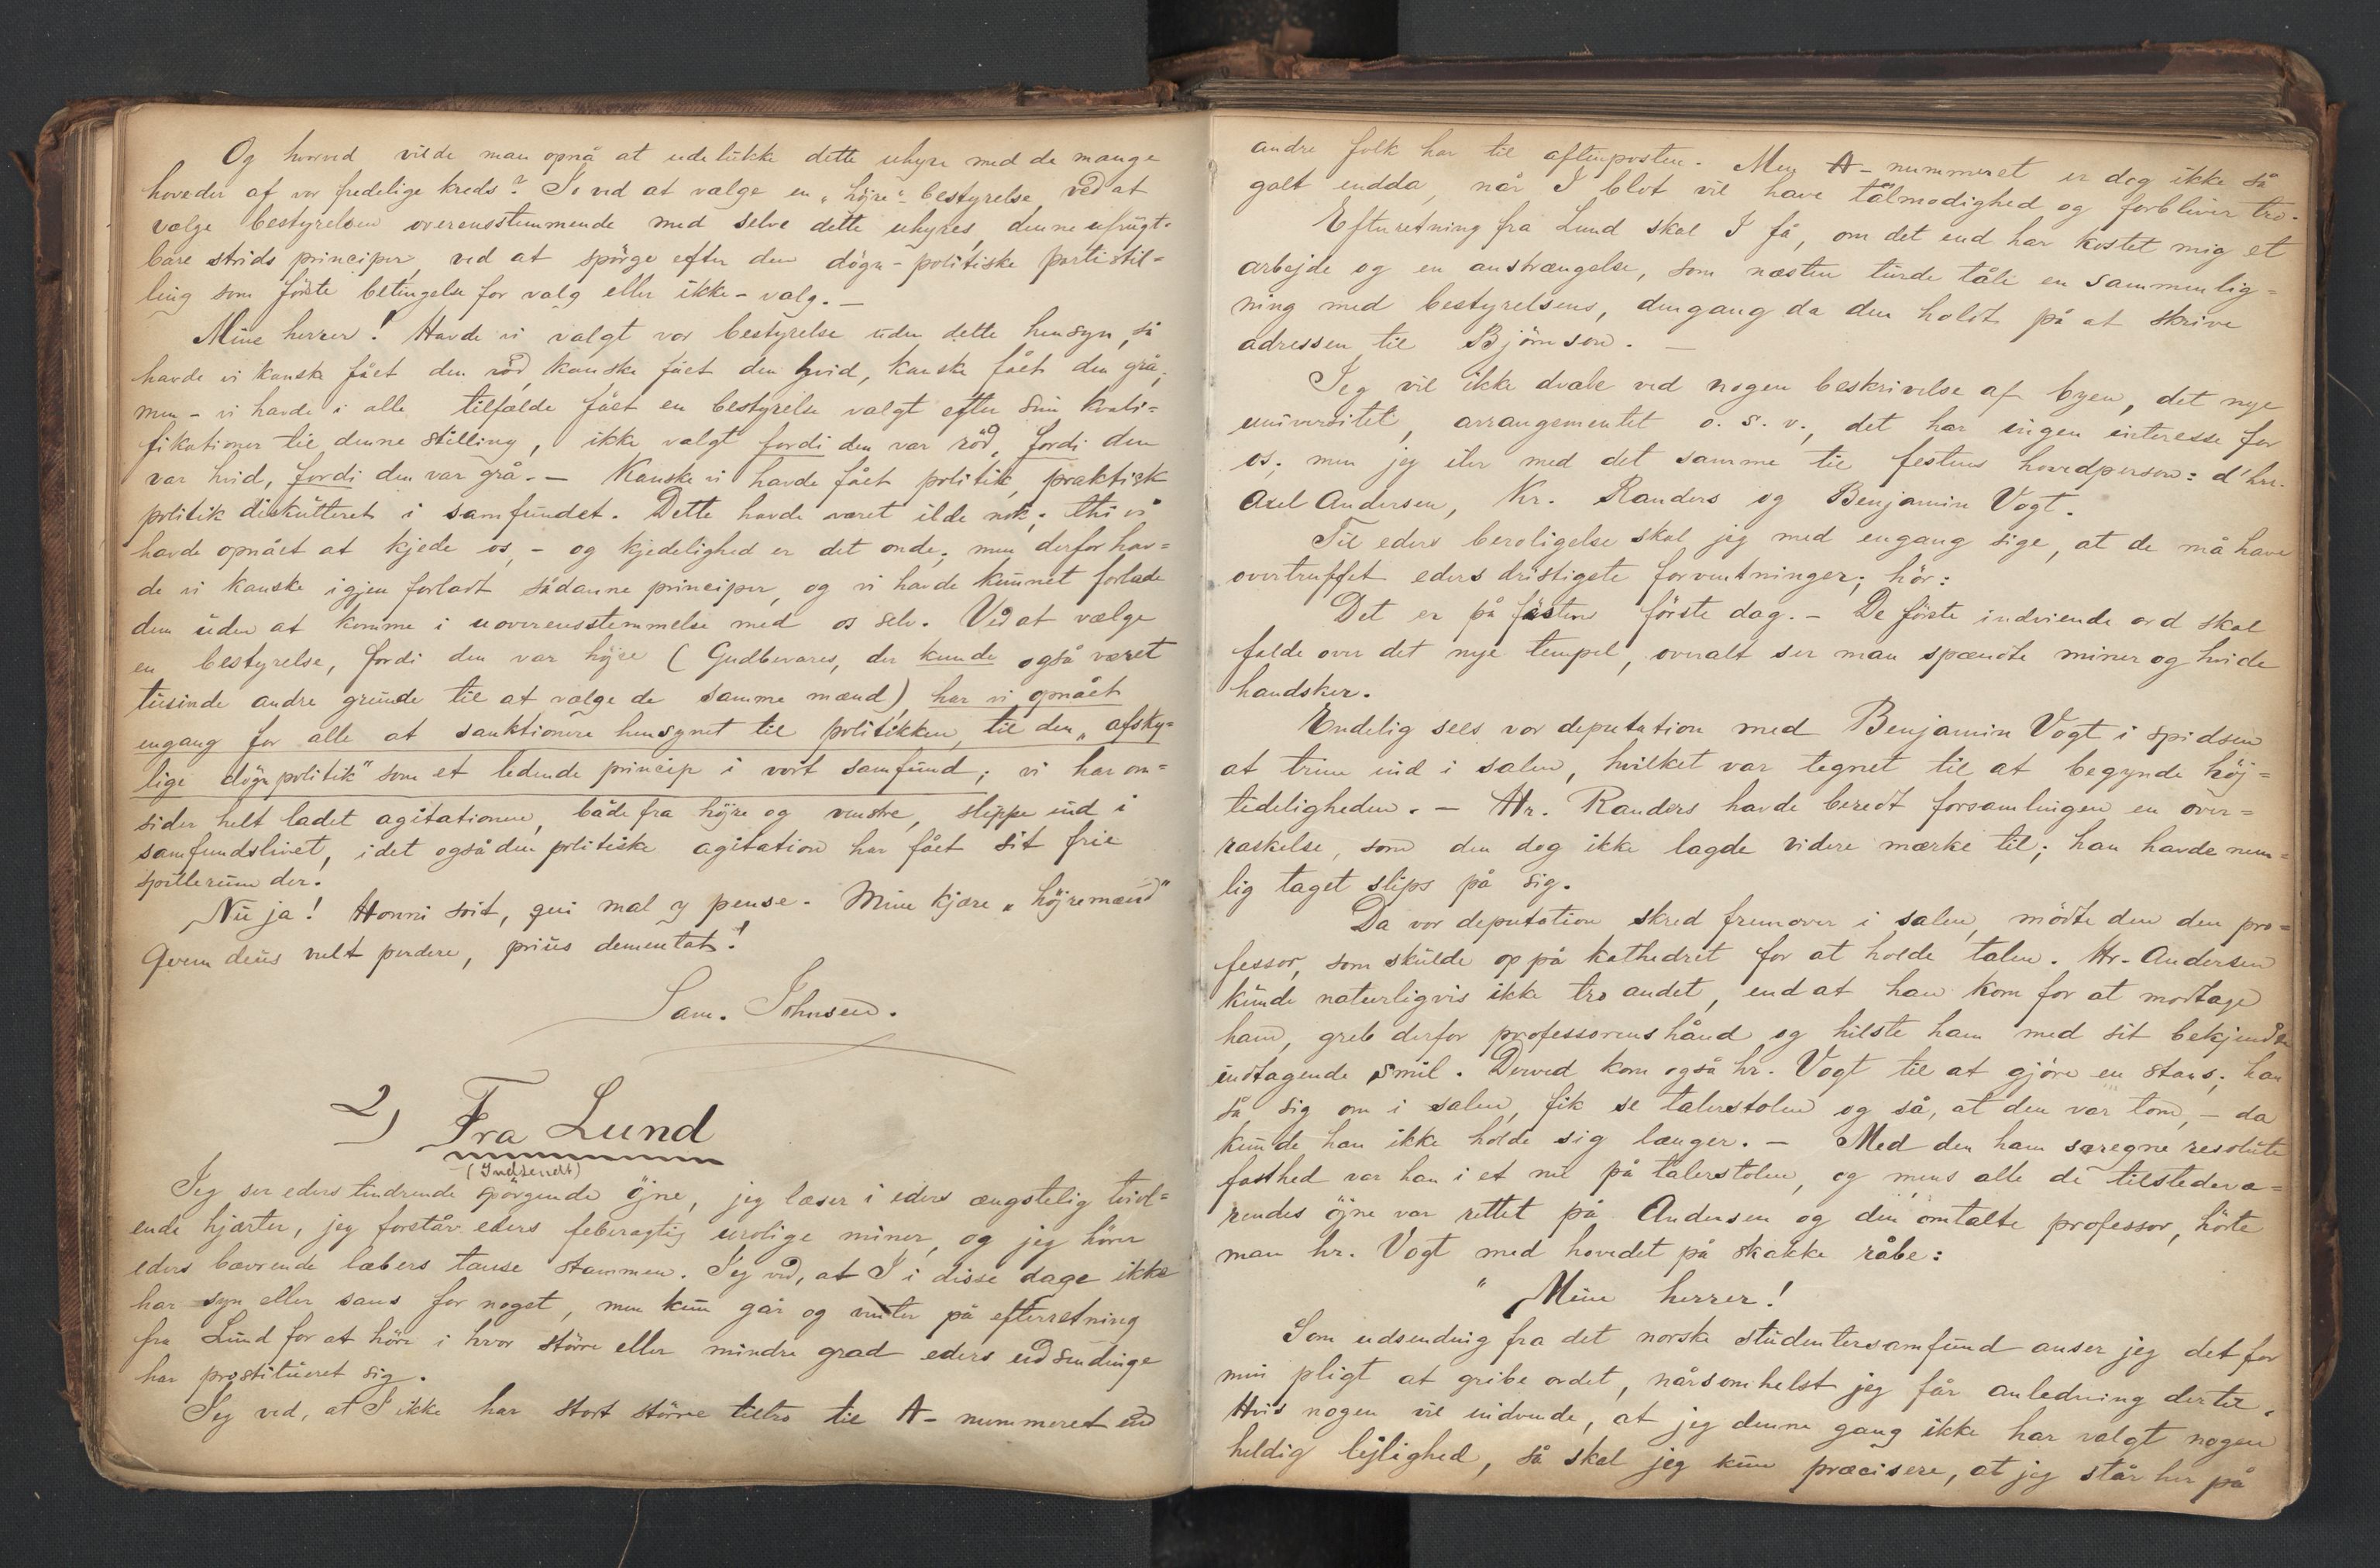 Og hvorved vilde man opnå at udelukke dette uhyre med de mange
hoveder af vor fredelige kreds? Jo ved at vælge en „höjre“-bestyrelse, ved at
vælge bestyrelsen overensstemmende med selve dette uhyres, denne ufrugt-
bare strids principer, ved at spörge efter den dögn-politiske partistil=
ling som förste betingelse for valg eller ikke-valg. —
Mine herrer! Havde vi valgt vor bestyrelse uden dette hensyn, så
havde vi kanske fået den röd, kanske fået den hvid, kanske fået den grå,
men – vi havde i alle tilfælde fået en bestyrelse valgt efter sine kvali=
fikationer til denne stilling, ikke valgt fordi den var röd, fordi den
var hvid, fordi den var grå. — Kanske vi havde fået politik, praktisk
politik diskutteret i samfundet. Dette havde været ilde nok; thi vi
havde opnået at kjede os, – og kjedelighed er det onde; men derfor hav=
de vi kanske igjen forladt sådanne principer, og vi havde kunnet forlade
dem uden at komme i uoverensstemmelse med os selv. Ved at vælge
en bestyrelse, fordi den var höjre (Gudbevares, der kunde også været
tusinde andre grunde til at vælge de samme mænd), har vi opnået
engang for alle at sanktionere hensynet til politikken, til den „afsky=
lige dögnpolitik“ som et ledende princip i vort samfund; vi har om=
sider helt ladet agitationen, både fra höjre og venstre, slippe ind i
samfundslivet, idet også den politiske agitation har fået sit frie
spillerum der.
Nu ja! Honni soit, qui mal y pense. Mine kjære „höjremænd“
Qvem deus vult perdere, prius dementat!
Sam. Johnsen.
2) Fra Lund
(Indsendt)
Jeg ser eders tindrende spörgende öjne, jeg læser i eders ængstelig tvivl=
ende hjærter, jeg forstår eders feberagtig urolige miner, og jeg hörer
eders bævrende læbers tause stammen. Jeg ved, at I i disse dage ikke
har syn eller sans for noget, men kun går og venter på efterretning
fra Lund for at höre i hvor större eller mindre grad eders udsendinge
har prostitueret sig.
Jeg ved, at I ikke har stort större tiltro til A-nummeret end
andre folk har til aftenposten. Men A-nummeret er dog ikke så
galt endda, når I blot vil have tålmodighed og forbliver tro.
Efterretning fra Lund skal I få, om det end har kostet mig et
arbejde og en anstrængelse, som næsten turde tåle en sammenlig=
ning med bestyrelsens, dengang da den holdt på at skrive
adressen til Björnson. —
Jeg vil ikke dvæle ved nogen beskrivelse af byen, det nye
universitet, arrangementet o. s. v., det har ingen interesse for
os; men jeg iler med det samme til festens hovedperson: d'hrr.
Axel Andersen, Kr. Randers og Benjamin Vogt.
Til eders beroligelse skal jeg med engang sige, at de må have
overtruffet eders dristigste forventninger; hör:
Det er på festens förste dag. – De förste indviende ord skal
falde over det nye tempel, overalt ser man spændte miner og hvide
handsker.
Endelig sees vor deputation med Benjamin Vogt i spidsen
at trine ind i salen, hvilket var tegnet til at begynde höj=
tideligheden. — Hr. Randers havde beredt forsamlingen en over=
raskelse, som den dog ikke lagde videre mærke til; han havde nem=
lig taget slips på sig.
Da vor deputation skred fremover i salen, mödte den den pro=
fessor, som skulde op på kathedret for at holde talen. Hr. Andersen
kunde naturligvis ikke tro andet, end at han kom for at modtage
ham, greb derfor professorens hånd og hilste ham med sit bekjendte
indtagende smil. Derved kom også hr. Vogt til at gjöre en stans; han
så sig om i salen, fik se talerstolen og så, at den var tom, – da
kunde han ikke holde sig længer. — Med den ham særegne resolute
fasthed var han i et nu på talerstolen, og mens alle de tilstedevæ=
rendes öjne var rettet på Andersen og den omtalte professor, hörte
man hr. Vogt med hovedet på skakke råbe:
„Mine herrer!
Som udsending fra det norske studentersamfund anser jeg det for
min pligt at gribe ordet, nårsomhelst jeg får anledning dertil.
Hvis nogen vil indvende, at jeg denne gang ikke har valgt nogen
heldig lejlighed, så skal jeg kun præcisere, at jeg står her på